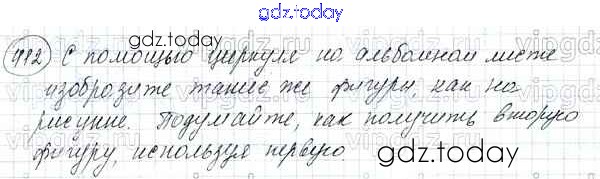 gdz.today
912 С помощью циркуля на альбомном листе
gdz.today
изобразите такие же фигуры, как на
рисунке. Подумайте, как получить вторую
фигуру, используя первую.
gdz.today